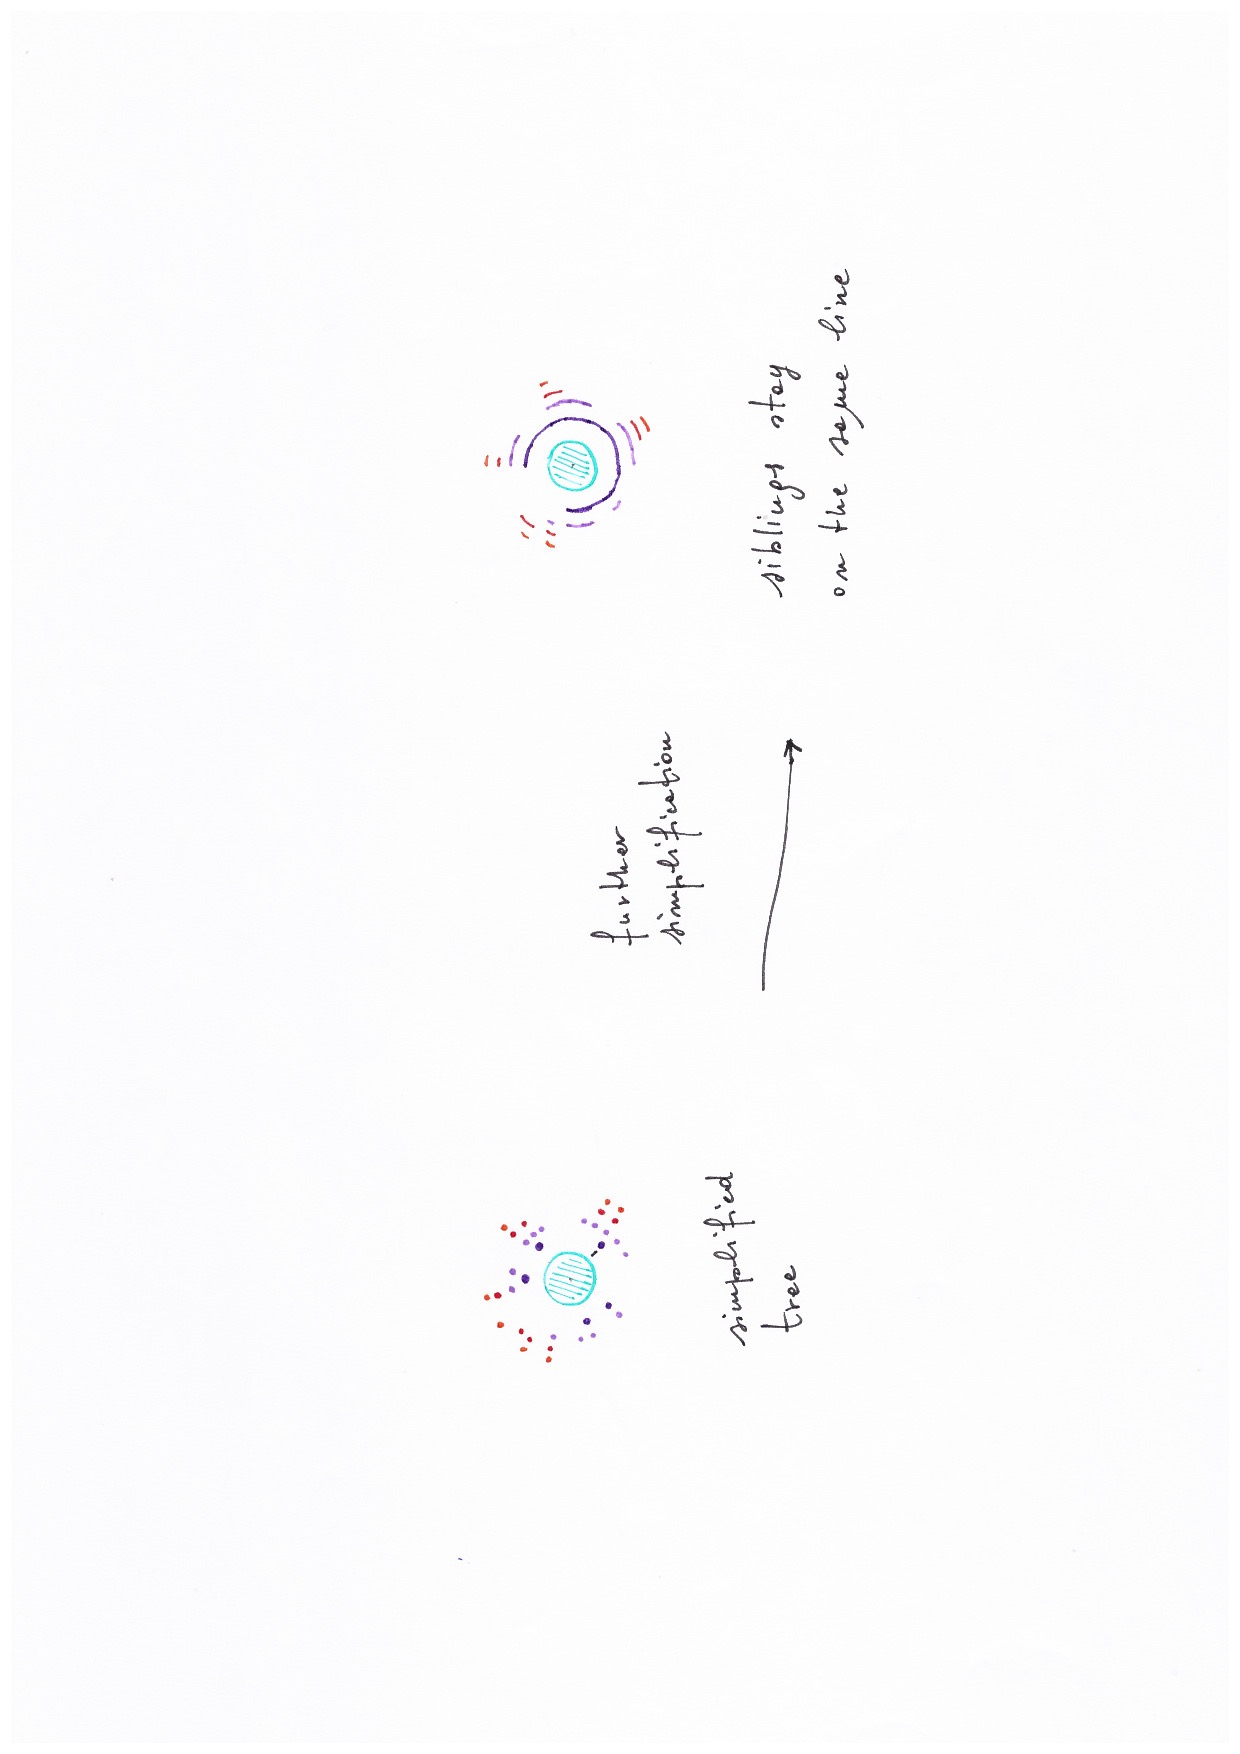 simplified
tree
further
simplification
siblings stay
on the same line